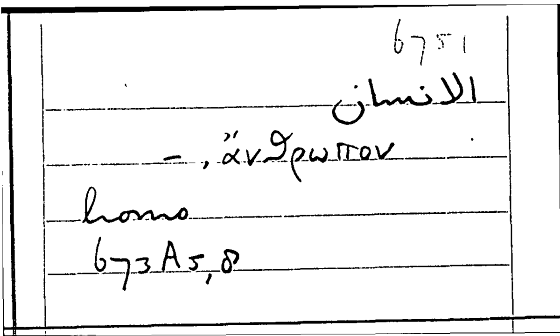 6751
الانسان
– , ἄνθρωπον
homo
673A5,8